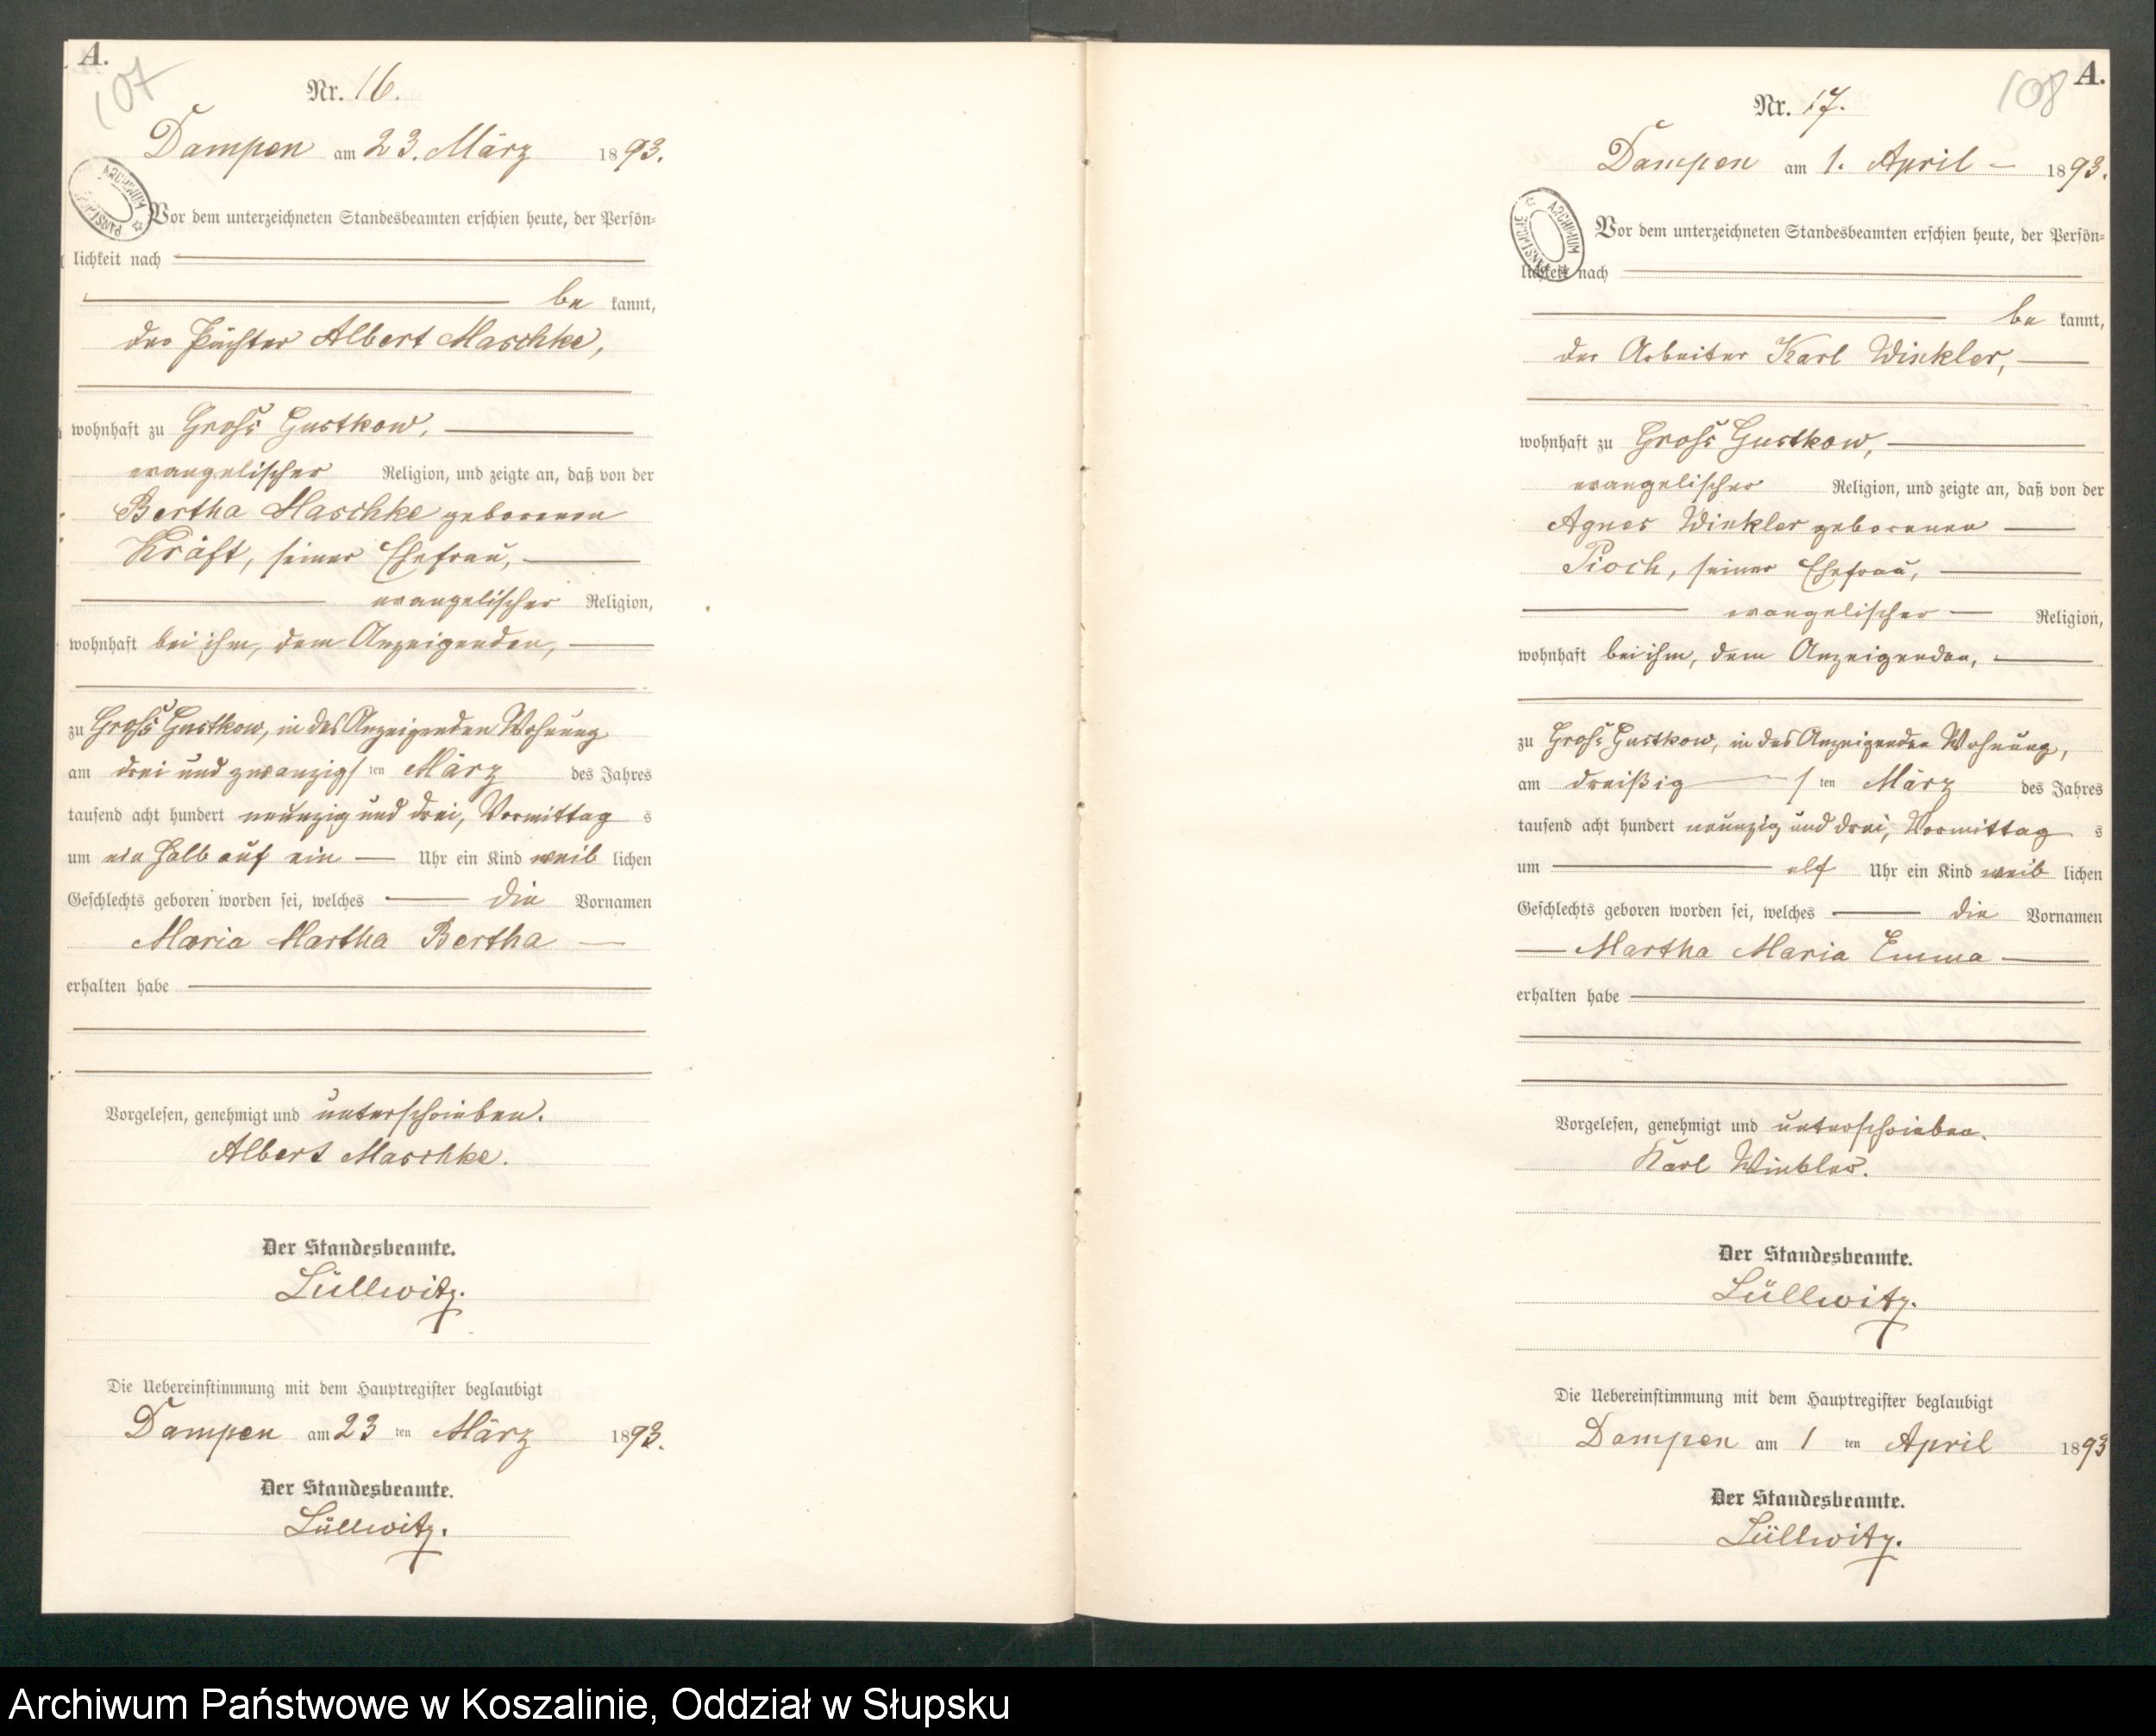 A.
107
Nr. 16.
Dampen am 23. März 1893.
Vor dem unterzeichneten Standesbeamten erschien heute, der Persön-
lichkeit nach
be kannt,
der Pächter Albert Maschke,
wohnhaft zu Groß Gustkow,
evangelischer Religion, und zeigte an, daß von der
Bertha Maschke geborenen
Kräft, seiner Ehefrau,
evangelischer Religion,
wohnhaft bei ihm, dem Anzeigenden,
zu Groß Gustkow, in des Anzeigenden Wohnung
am drei und zwanzigsten März des Jahres
tausend acht hundert neunzig und drei, Vormittags
um ein halb auf ein Uhr ein Kind weiblichen
Geschlechts geboren worden sei, welches die Vornamen
Maria Martha Bertha
erhalten habe
Vorgelesen, genehmigt und unterschrieben.
Albert Maschke.
Der Standesbeamte.
Lüllwitz.
Die Uebereinstimmung mit dem Hauptregister beglaubigt
Dampen am 23 ten März 1893.
Der Standesbeamte.
Lüllwitz.
A.
108
Nr. 17.
Dampen am 1. April 1893.
ARCHIWUM PAŃSTWOWE
Vor dem unterzeichneten Standesbeamten erschien heute, der Persön-
lichkeit nach
be kannt,
der Arbeiter Karl Winkler,
wohnhaft zu Groß Gustkow,
evangelischer Religion, und zeigte an, daß von der
Agnes Winkler geborenen
Pioch, seiner Ehefrau,
evangelischer Religion,
wohnhaft bei ihm, dem Anzeigenden,
zu Groß Gustkow, in des Anzeigenden Wohnung,
am dreißigsten März des Jahres
tausend acht hundert neunzig und drei, Vormittags
um elf Uhr ein Kind weiblichen
Geschlechts geboren worden sei, welches die Vornamen
Martha Maria Emma
erhalten habe
Vorgelesen, genehmigt und unterschrieben.
Karl Winkler.
Der Standesbeamte.
Lüllwitz.
Die Uebereinstimmung mit dem Hauptregister beglaubigt
Dampen am 1 ten April 1893
Der Standesbeamte.
Lüllwitz.
Archiwum Państwowe w Koszalinie, Oddział w Słupsku